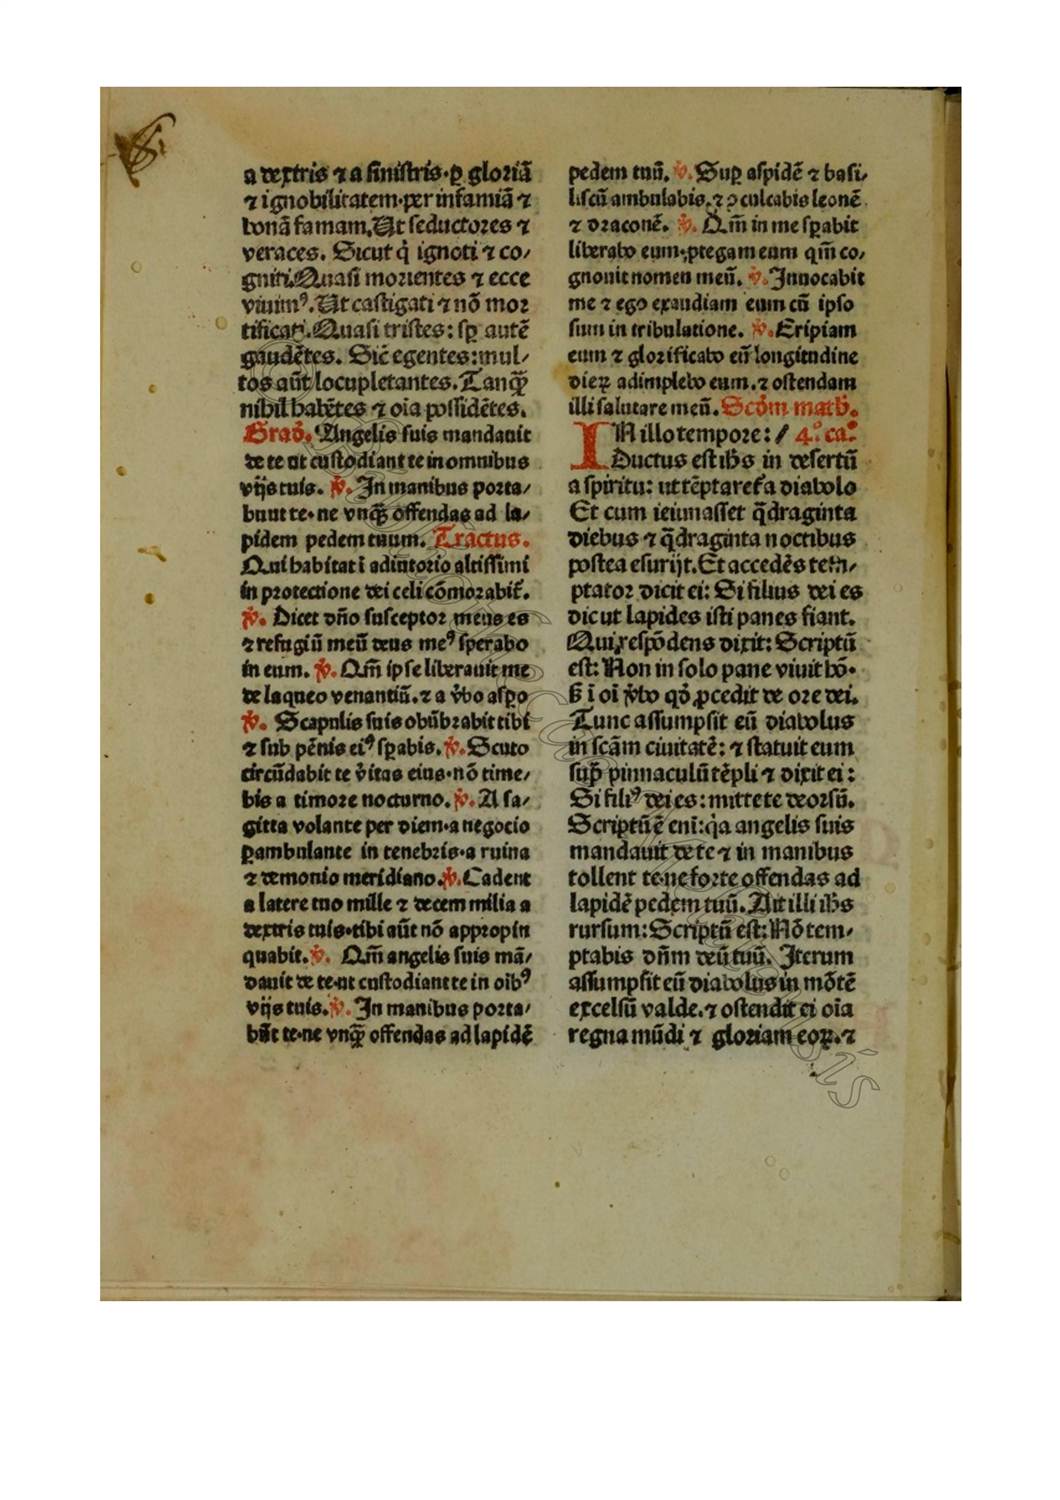 a dextris ⁊ a sinistris·ꝑ gloriā
⁊ ignobilitatem·per infamiā ⁊
bonā famam.Ut seductores ⁊
veraces. Sicut q̇ ignoti ⁊ co/
gniti.Quasi morientes ⁊ ecce
viuimꝰ.Ut castigati ⁊ nō mor
tificati.Quasi tristes: sꝑ autē
gaudētes. Sic̄ egentes:mul/
tos aūt locupletantes.Tanqꝫ̄
nihil habētes ⁊ oīa possidētes.
Grad̄. Angelis suis mandauit
de te ut custodiant te in omnibus
vijs tuis. ℣. In manibus porta/
bunt te·ne vnqꝫ̄ offendas ad la/
pidem pedem tuum. Tractus.
Qui habitat ī adiutorio altissimi
in protectione dei celi cōmorabit̄.
℣. Dicet dn̄o susceptor meus es
⁊ refugiū meū deus meꝰ sperabo
in eum. ℣. Qm̄ ipse liberauit me
de laqueo venantiū.⁊ a v̄bo asꝑo
℣. Scapulis suis obūbrabit tibi
⁊ sub pēnis eiꝰ sꝑabis.℣.Scuto
circūdabit te v̄itas eius·nō time/
bis a timore nocturno.℣.A sa/
gitta volante per diem·a negocio
ꝑambulante in tenebris·a ruina
⁊ demonio meridiano.℣.Cadent
a latere tuo mille ⁊ decem milia a
dextris tuis·tibi aūt nō appropin
quabit.℣. Qm̄ angelis suis mā/
dauit de te·ut custodiant te in oībꝰ
vijs tuis.℣.In manibus porta/
būt te·ne vnqꝫ̄ offendas ad lapidē
pedem tuū.℣.Suꝑ aspidē ⁊ basi/
liscū ambulabis.⁊ ↄculcabis leonē
⁊ draconē. ℣. Qm̄ in me sꝑabit
liberabo eum·ꝓtegam eum qm̄ co/
gnouit nomen meū. ℣.Inuocabit
me ⁊ ego exaudiam eum cū ipso
sum in tribulatione. ℣.Eripiam
eum ⁊ glorificabo eū longitudine
dieꝝ adimplebo eum.⁊ ostendam
illi salutare meū.Scd̄m math̄.
IN illo tempore: / 4.° ca°.
Ductus est ih̄s in desertū
a spiritu: ut tēptaret̄ a diabolo
Et cum ieiunasset q̄draginta
diebus ⁊ q̄draginta noctibus
postea esurijt.Et accedēs tem/
ptator dicit ei: Si filius dei es
dic ut lapides isti panes fiant.
Qui respōdens dixit: Scriptū
est: Non in solo pane viuit hō·
s̄ ī oī v̄bo qd̄ ꝓcedit de ore dei.
Tunc assumpsit eū diabolus
in scām ciuitatē: ⁊ statuit eum
suꝑ pinnaculū tēpli ⁊ dixit ei:
Si filiꝰ dei es: mitte te deorsū.
Scriptū ē eni:q̇a angelis suis
mandauit de te ⁊ in manibus
tollent te·ne forte offendas ad
lapidē pedem tuū.Ait illi ih̄s
rursum:Scriptū est:Nō tem/
ptabis dn̄m deū tuū. Iterum
assumpsit eū diabolus in mōtē
excelsū valde.⁊ ostendit ei oīa
regna mūdi ⁊ gloriam eoꝝ.⁊